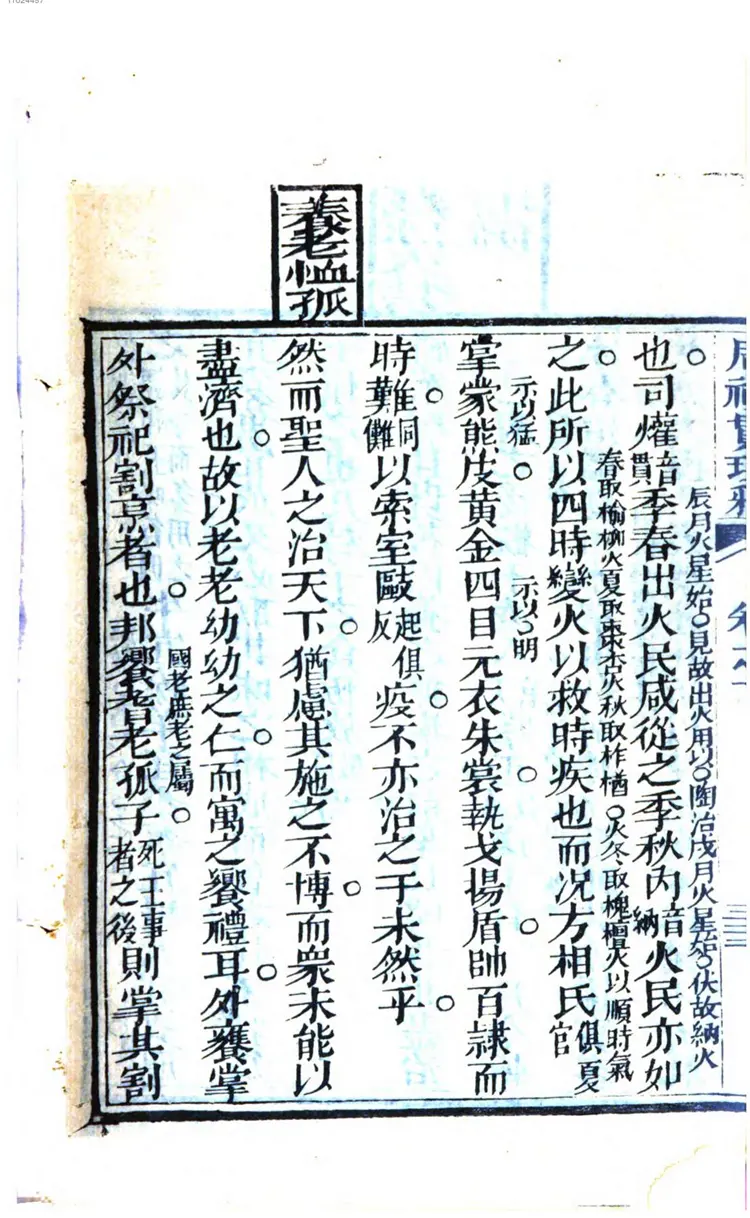 周禮貫珠
三三
辰月火星始見故出火用以陶冶戌月火星始伏故納火
也司爟音貫季春出火民咸從之季秋內音納火民亦如
春取榆柳火夏取棗杏火秋取柞楢火冬取槐檀火以順時氣
之此所以四時變火以救時疾也而况方相氏夏官俱
示以猛 示以明
掌蒙熊皮黄金四目元衣朱裳執戈揚盾帥百隸而
時難同儺以索室毆起俱反疫不亦治之于未然乎
養老恤孤
然而聖人之治天下猶慮其施之不博而衆未能以
盡濟也故以老老幼幼之仁而寓之饗禮耳外饔掌
國老庶老之屬
外祭祀割烹者也邦饗耆老孤子死王事者之後則掌其割